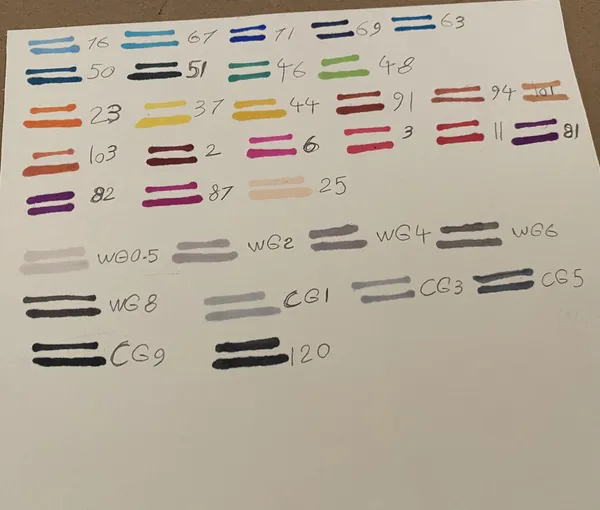 76 67 71 69 63
50 51 46 48
23 37 44 91 94 101
103 2 6 3 11 81
82 87 25
WG0.5 WG2 WG4 WG6
WG8 CG1 CG3 CG5
CG9 120